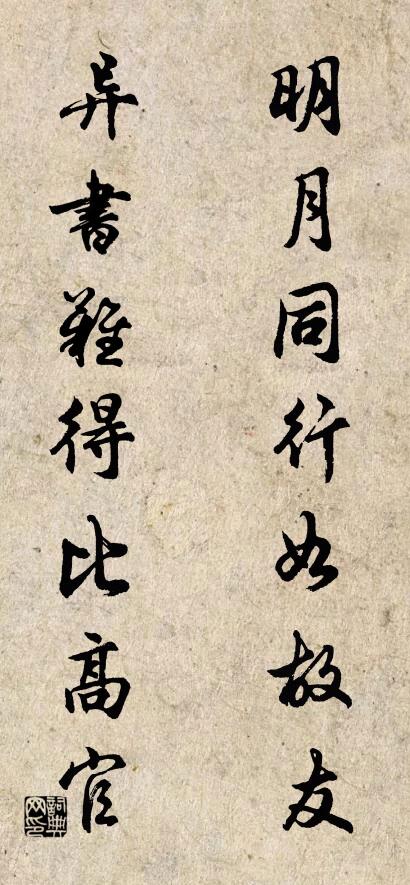 明月同行如故友
异书难得比高官
詞典網印